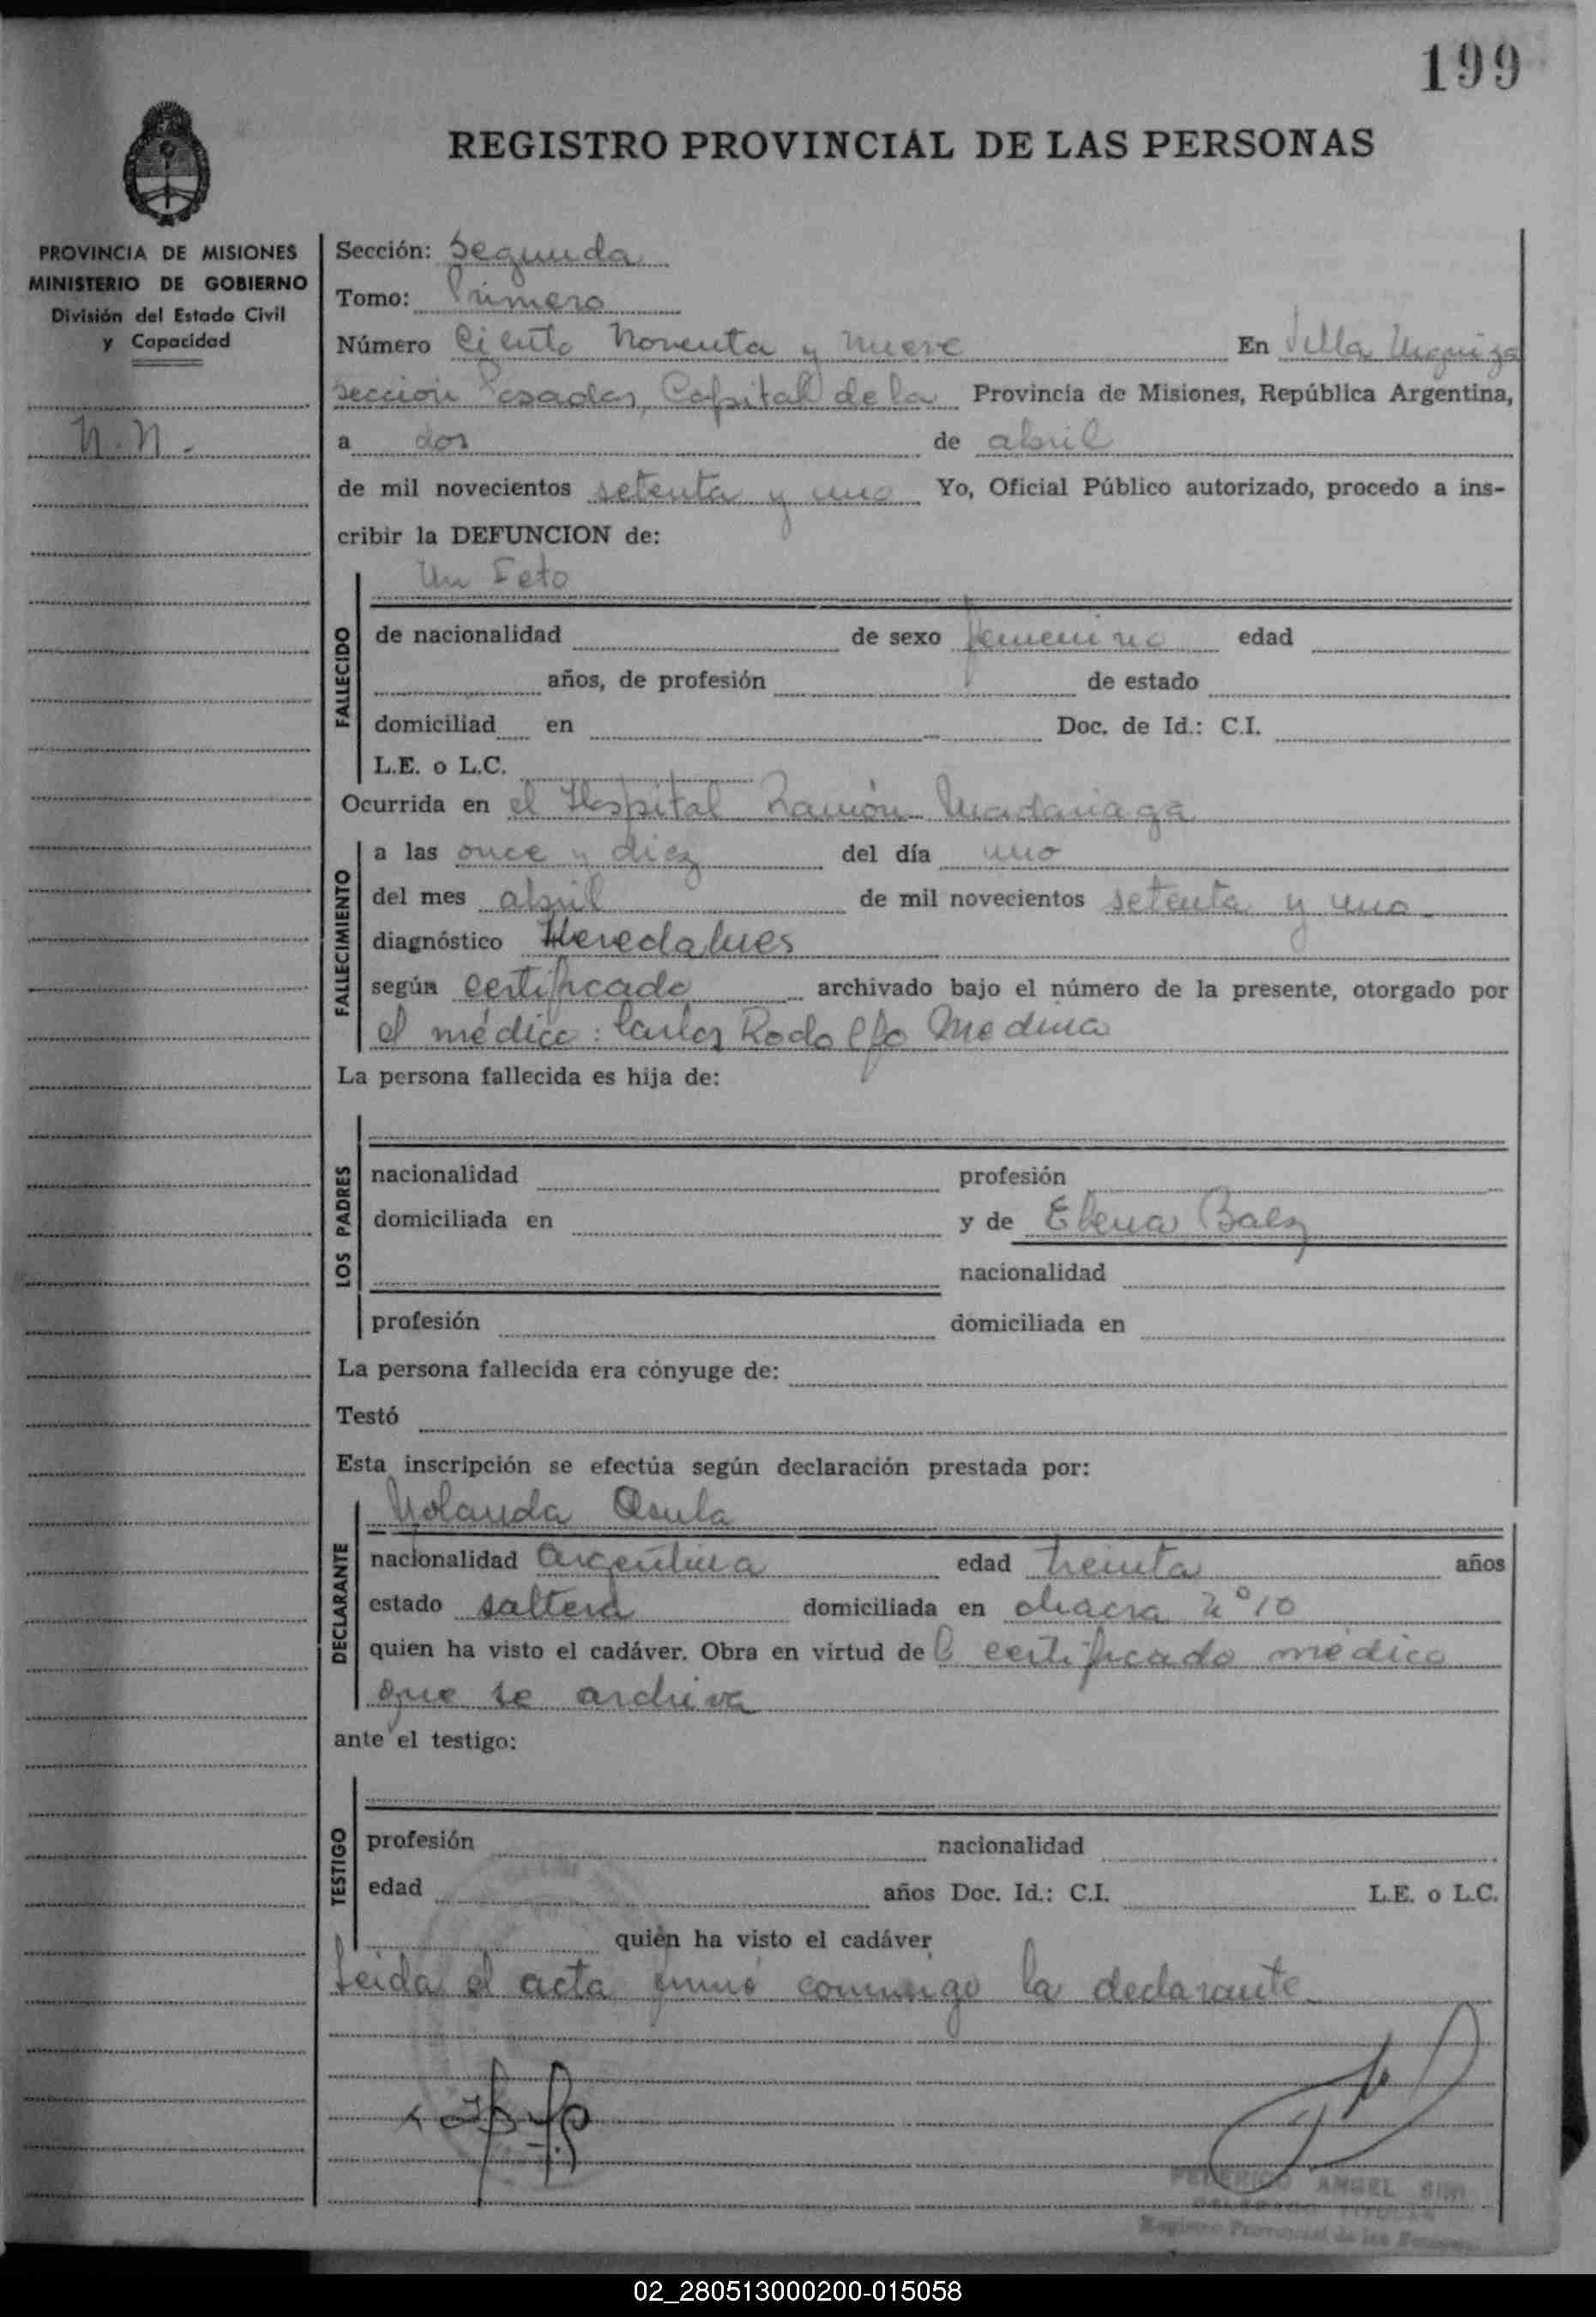 199
REGISTRO PROVINCIAL DE LAS PERSONAS
PROVINCIA DE MISIONES
MINISTERIO DE GOBIERNO
División del Estado Civil
y Capacidad
N.N.-
Sección: Segunda
Tomo: Primero
Número Ciento Noventa y nueve En Villa Urquiza
sección Posadas, Capital de la Provincia de Misiones, República Argentina,
a dos de abril
de mil novecientos setenta y uno Yo, Oficial Público autorizado, procedo a ins-
cribir la DEFUNCION de:
Un Feto
FALLECIDO
de nacionalidad de sexo femenino edad
años, de profesión de estado
domiciliad en Doc. de Id.: C.I.
L.E. o L.C.
Ocurrida en el Hospital Ramón Madariaga
FALLECIMIENTO
a las once y diez del día uno
del mes abril de mil novecientos setenta y uno
diagnóstico Heredolues
según certificado archivado bajo el número de la presente, otorgado por
el médico: Carlos Rodolfo Medina
La persona fallecida es hija de:
LOS PADRES
nacionalidad profesión
domiciliada en y de Elena Baez
nacionalidad
profesión domiciliada en
La persona fallecida era cónyuge de:
Testó
Esta inscripción se efectúa según declaración prestada por:
Yolanda
DECLARANTE
nacionalidad argentina edad treinta años
estado soltera domiciliada en chacra Nº 10
quien ha visto el cadáver. Obra en virtud del certificado médico
que se archiva
ante el testigo:
TESTIGO
profesión nacionalidad
edad años Doc. Id.: C.I. L.E. o L.C.
quién ha visto el cadáver
Leida el acta firmó conmigo la declarante
FEDERICO ANGEL
Registro Provincial de las Personas
02_280513000200-015058